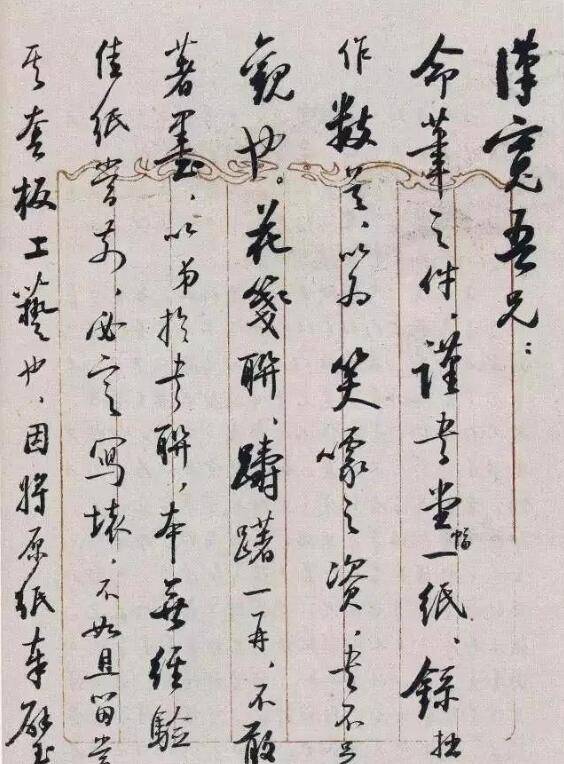 漢寬吾兄：
命筆之件，謹書堂幅一紙，錄拙
作數首，以為笑噱之資，書不足
觀也。花箋聯，躊躇一再，不敢
著墨，以弟於書聯，本無經驗
佳紙當前，必定寫壞，不如且留賞
其套板工藝也，因將原紙奉璧